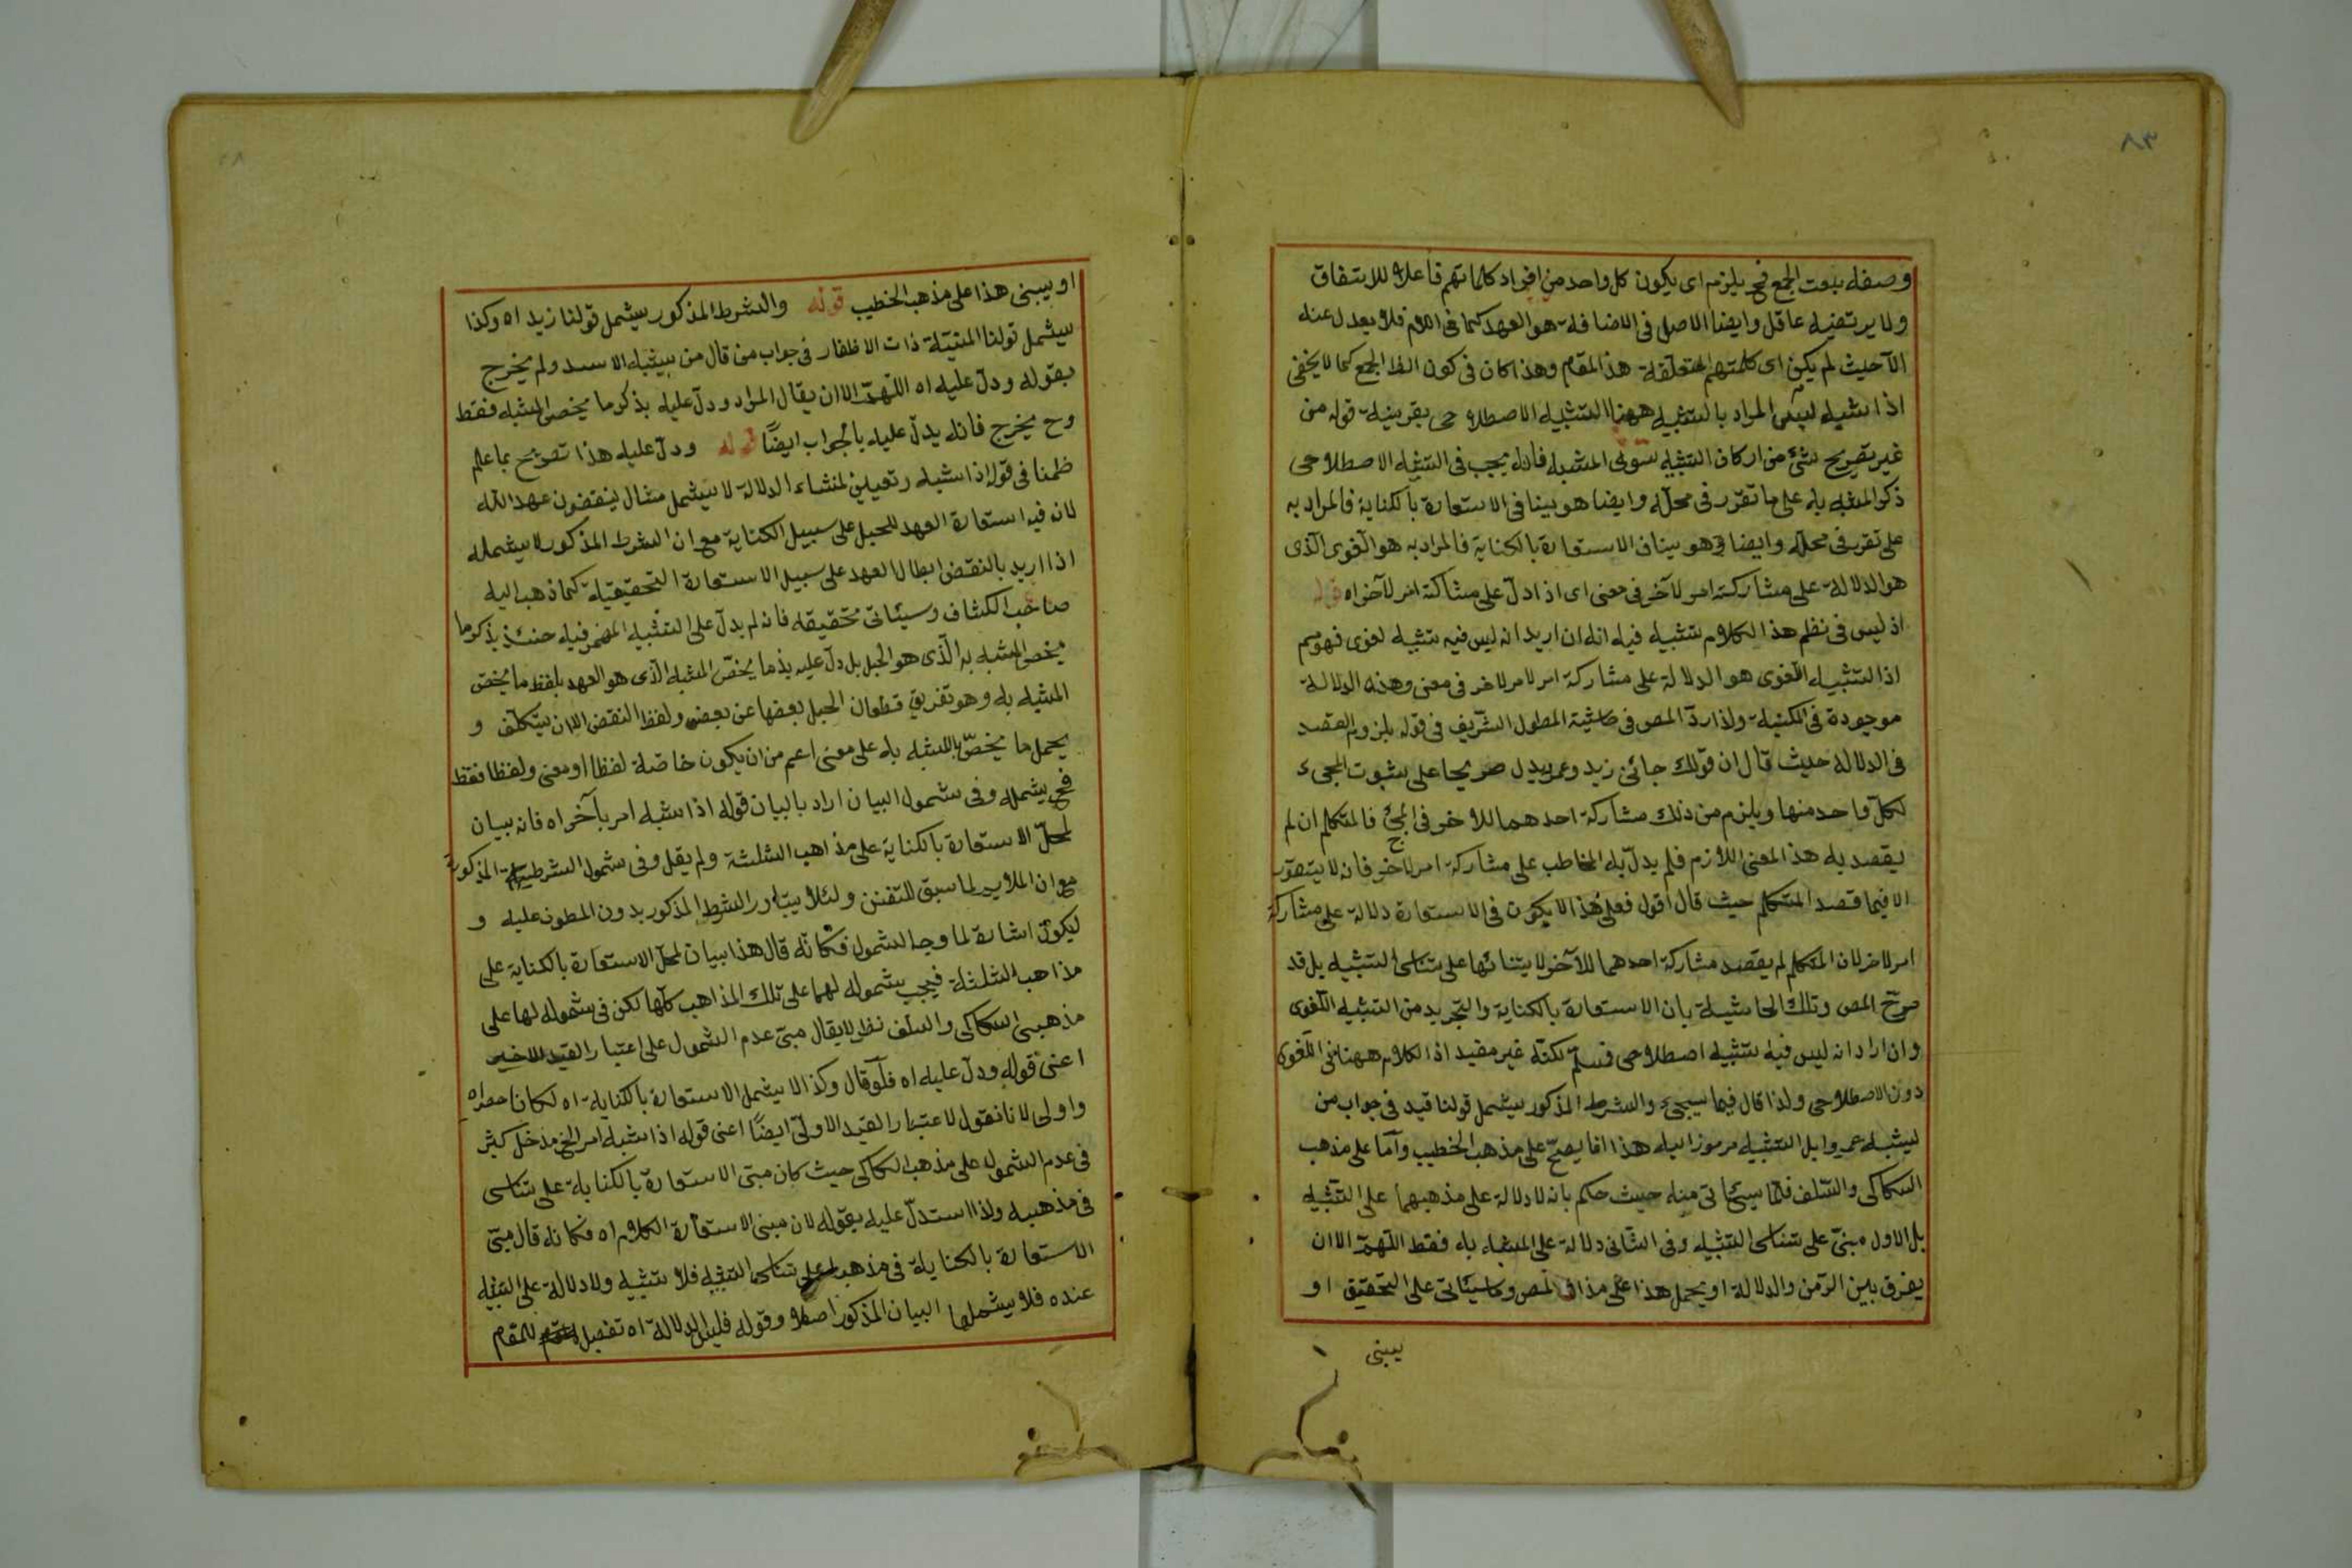 ٨٣
وصفه بنعت الجمع فح يلزم اى يكون كل واحد من افراد كلماتهم فاعلا للاتفاق
ولا يرتضيه عاقل وايضا الاصل فى الاضافة هو العهد كما فى اللام فلا يعدل عنه
الآ حيث لم يكن اى كلمتهم المتعلقة هذا المقام وهذا كان فى كون الفظ الجمع كما لا يخفى
اذا شبه ليس المراد بالتشبيه ههنا التشبيه الاصطلاحى بقرينة قوله من
غير تصريح بشئ من اركان التشبيه سوى المشبه فانه يجب فى التشبيه الاصطلاحى
ذكر المشبه به على ما تقرر فى محله وايضا هو ينافى الاستعارة بالكناية فالمراد به
على تقرر فى محله وايضا هو ينافى الاستعارة بالكناية فالمراد به هو اللغوى الذى
هو الدلالة على مشاركة امر لآخر فى معنى اى اذا دل على مشاركة امر لآخر اه قوله
اذ ليس فى نظم هذا الكلام تشبيه فيه انه ان اريد انه ليس فيه تشبيه لغوى فهو مم
اذ التشبيه اللغوى هو الدلالة على مشاركة امر لامر لاخر فى معنى وهذه الدلالة
موجودة فى المكنية ولذا ردّ المص فى حاشية المطول الشريف فى قوله بلزوم القصد
فى الدلالة حيث قال ان قولك جائنى زيد وعمرو يدل صريحا على ثبوت المجىء
لكل واحد منها ويلزم من ذلك مشاركة احدهما للاخر فى المجئ فالمتكلم ان لم
يقصد به هذا المعنى اللازم فلم يدل به المخاطب على مشاركة امر لاخر فانه لا يتصور
الا فيما قصد المتكلم حيث قال اقول فعلى هذا لا يكون فى الاستعارة دلالة على مشاركة
امر لاخر لان المتكلم لم يقصد مشاركة احدهما للآخر لا يتنائها على تناسى التشبيه بل قد
صرح المص وتلك الحاشية بان الاستعارة بالكناية والتجريد من التشبيه اللغوى
وان اراد انه ليس فيه تشبيه اصطلاحى فمسلم لكنه غير مفيد اذ الكلام ههنا فى اللغوى
دون الاصطلاحى ولذا قال فيما سيجىء والشرط المذكور يشمل قولنا قيد فى جواب من
يشبه عمروا بل التشبيه مرموز اليه هذا انما يصح على مذهب الخطيب وامّا على مذهب
السكاكى والسلف فلما سيئاتى منه حيث حكم بانه لا دلالة على مذهبهما على التشبيه
بل الاول مبنى على تناسى التشبيه وفى الثانى دلالة على المشباء به فقط اللهمّ الا ان
يفرق بين الرّمز والدلالة او يحمل هذا على مذاق المص وسيئاتى على التحقيق او
يبنى
او يبنى هذا على مذهب الخطيب قوله والشرط المذكور يشمل قولنا زيد اه وكذا
يشمل قولنا المنية ذات الاظفار فى جواب من قال من يشبه الاسد ولم يخرج
بقوله ودلّ عليه اه اللّهمّ الا ان يقال المراد ودلّ عليه بذكر ما يخص المشبه فقط
وح يخرج فانه يدلّ عليه بالجواب ايضًا قوله ودلّ عليه هذا تصريح بما علم
ظمنا فى قوله اذا شبه وتعيين لمنشاء الدلالة لا يشمل مثال ينقضون عهد الله
لان فيه استعارة العهد للحبل على سبيل الكناية مع ان الشرط المذكور لا يشمله
اذا اريد بالنقض ابطال العهد على سبيل الاستعارة التحقيقية كما ذهب اليه
صاحب الكشاف وسيئاتى تحقيقه فانه لم يدل على التشبيه المضمر فيه حينئذ بذكر ما
يخص المشبه به الّذى هو الحبل بل دلّ عليه بذ ما يخصّ المشبه الّذى هو العهد بلفظ ما يخصّ
المشبه به وهو تفريق قطعان الحبل بعضها عن بعض ولفظ النقض الا ان يتكلّف و
يحمل ما يخصّ بالمشبه به على معنى اعم من ان يكون خاصّة لفظا او معنى ولفظا فقط
فح يشمله وفى شمول البيان اراد بالبيان قوله اذا شبه امر بآخر اه فانه بيان
لمحلّ الاستعارة بالكناية على مذاهب الثلثة ولم يقل وفى شمول الشرطية المذكورة
مع ان الملايم لما سبق للتفنن ولئلا يتبادر الشرط المذكور بدون المطون عليه و
ليكون اشارة لما وجه الشمول فكانّه قال هذا بيان لمحلّ الاستعارة بالكناية على
مذاهب الثلثة فيجب شموله لهما على تلك المذاهب كلّها لكن فى شموله لها على
مذهبى السكاكى والسلف نظر لا يقال مبنى عدم الشمول على اعتبار القيد الاخير
اعنى قوله ودلّ عليه اه فلو قال وكذا لا يشمل الاستعارة بالكناية اه لكان اصراه
واولى لانا نقول لاعتبار القيد الاولىّ ايضًا اعنى قوله اذا شبه امر الخ مدخل كثير
فى عدم الشمول على مذهب السكاكى حيث كان مبنى الاستعارة بالكناية على تناسى
فى مذهبه ولذا استدلّ عليه بقوله لان مبنى الاستعارة الكلام اه فكانه قال مبنى
الاستعارة بالكناية فى مذهب على تناسى التشبيه فلا تشبيه ولا دلالة على التشبيه
عنده فلا يشملها البيان المذكور اصلا وقوله فليس الدلالة اه تفصيل للمقام